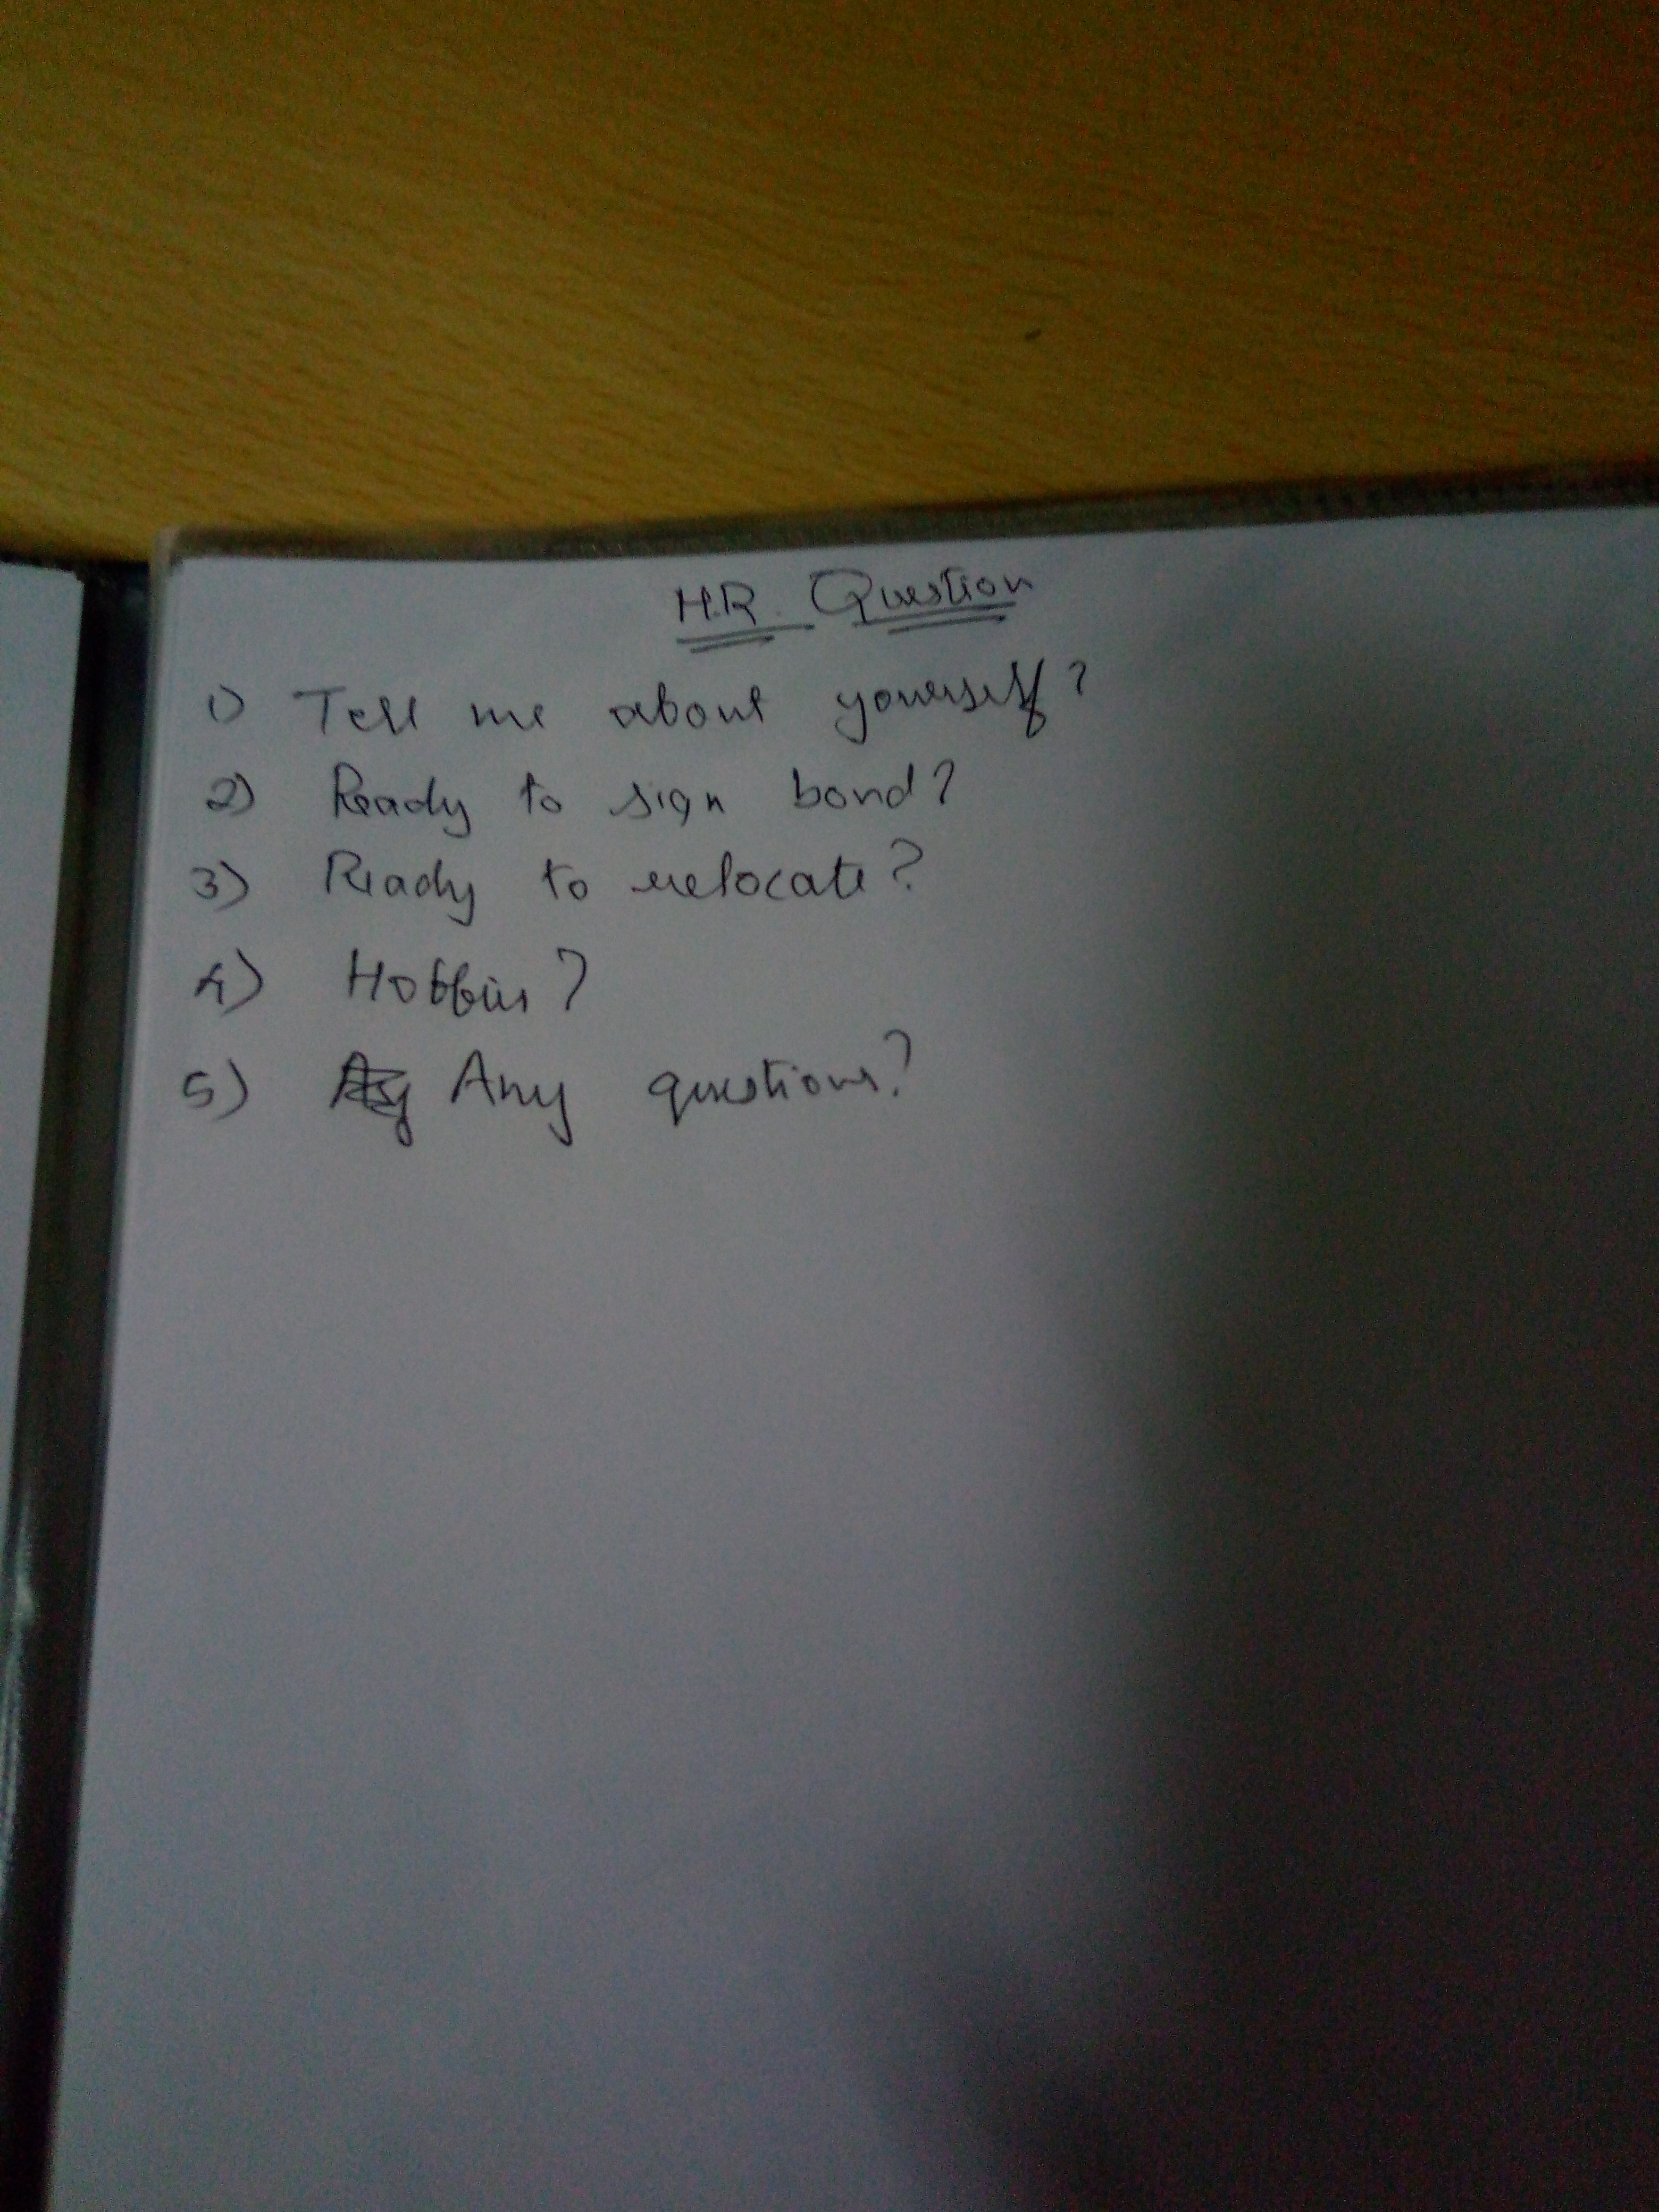 HR Question
1) Tell me about yourself?
2) Ready to sign bond?
3) Ready to relocate?
4) Hobbies?
5) Any questions?